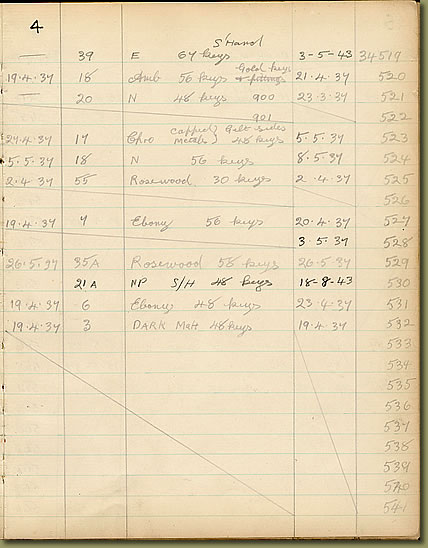 4
S'Hand
— 39 E 67 keys 3-5-43 34519
Gold keys
19.4.37 18 Amb 56 keys + fittings 21.4.37 520
— 20 N 48 keys 900 23.3.37 521
901 522
capped Gilt sides
27.4.37 17 metals } 48 keys 5.5.37 523
5.5.37 18 N 56 keys 8.5.37 524
2.4.37 55 Rosewood 30 keys 2.4.37 525
526
19.4.37 7 Ebony 56 keys 20.4.37 527
3.5.37 528
26.5.37 35A Rosewood 56 keys 26.5.37 529
21A NP S/H 48 keys 18-8-43 530
19.4.37 6 Ebony 48 keys 23.4.37 531
19.4.37 3 DARK Matt 48 keys 19.4.37 532
533
534
535
536
537
538
539
540
541